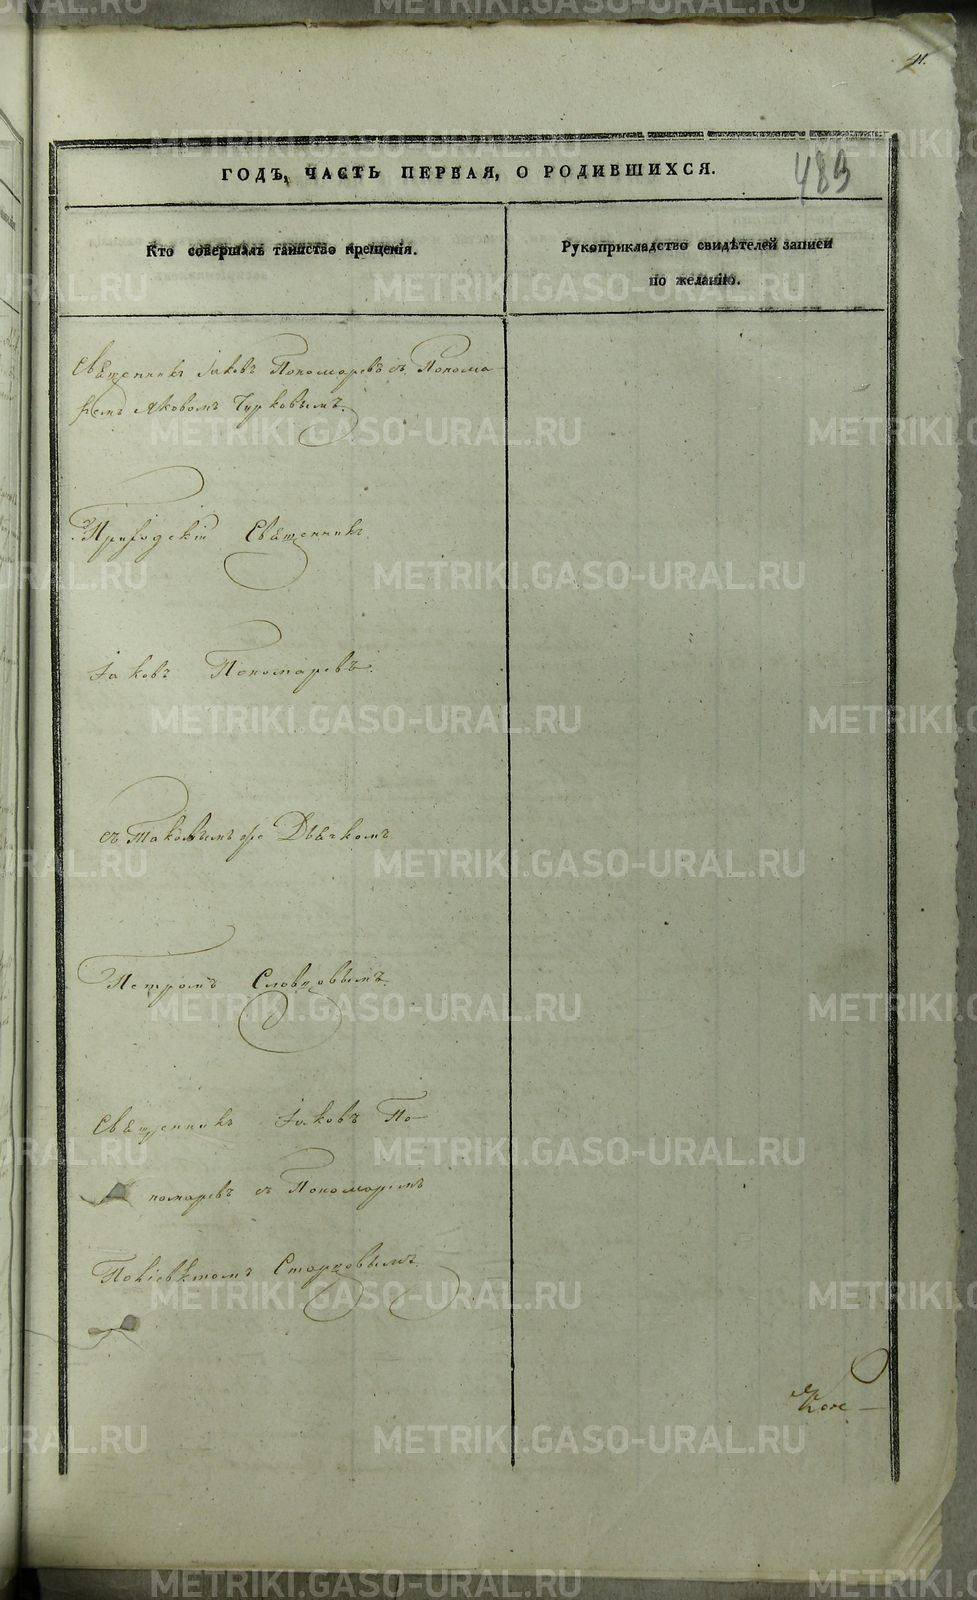 41.
483
ГОДЪ, ЧАСТЬ ПЕРВАЯ, О РОДИВШИХСЯ.
Кто совершалъ таинство крещенія.
Рукоприкладство свидѣтелей записи
по желанію.
Священникъ Іаковъ Пономаревъ съ Понома
ремъ Яковомъ Чурковымъ.
Приходскій Священникъ
Іаковъ Пономаревъ.
съ таковымъ же Дьячкомъ
Петромъ Словцовымъ.
Священникъ Іаковъ По-
номаревъ съ Пономаремъ
Старцовымъ.
METRIKI.GASO-URAL.RU